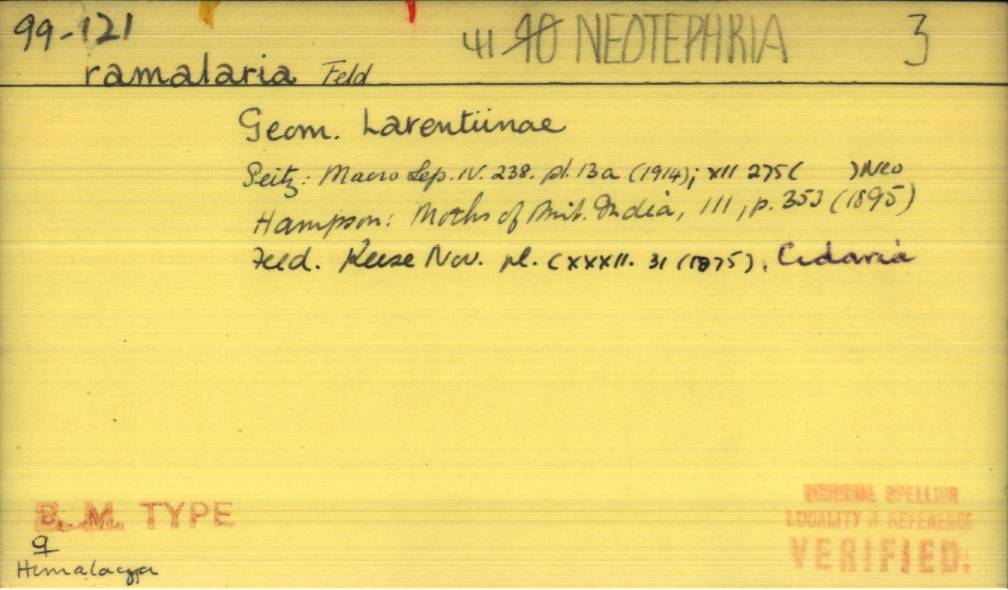 99-121
41 40 NEOTEPHRIA 3
ramalaria Feld
Geom. Larentiinae
Seitz: Macro Lep. IV. 238. pl. 13a (1914); XII 275 ( ) Neo
Hampson: Moths of Brit. India, III, p. 353 (1895)
Feld. Reise Nov. pl. CXXXII. 31 (1875). Cidaria
B. M. TYPE
♀
Himalaya
ORIGINAL SPELLING
LOCALITY & REFERENCE
VERIFIED.